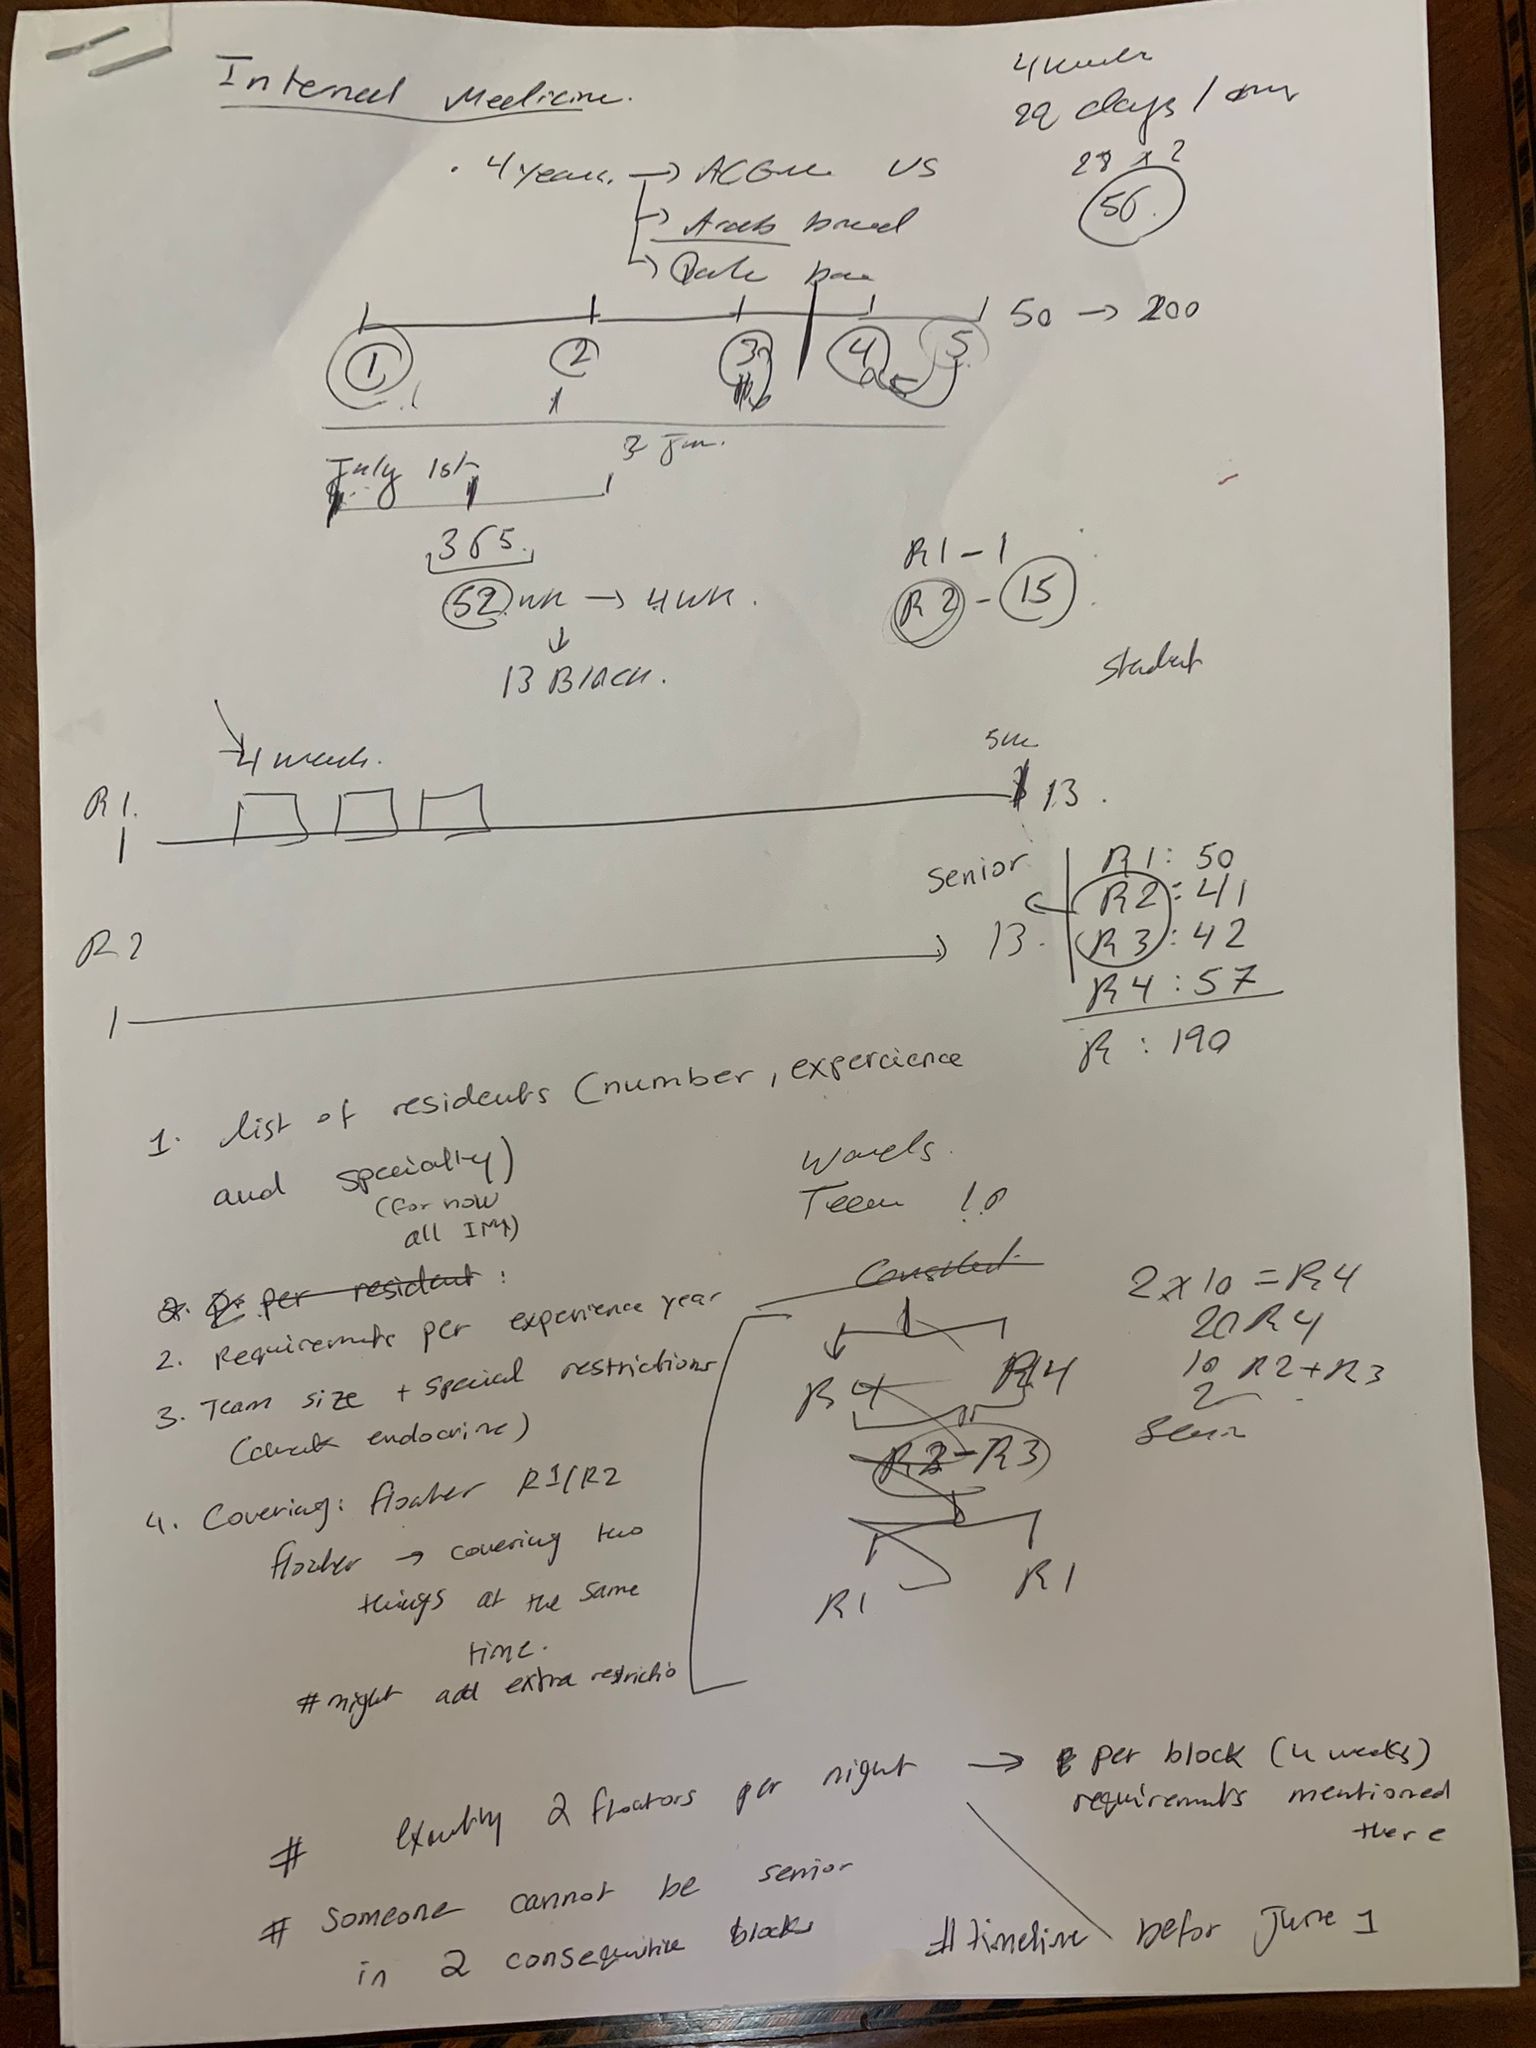 Internal Medicine.
4 weeks
28 days /
28 x 2
56.
. 4 years. → ACGME US
→ Arab board
→
50 → 200
1 2 3 4 5
July 1st
3 Jun.
365.
52 wk → 4 wk.
↓
13 Block.
R1 - 1
R2 - 15
student
4 week.
R1.
1
13.
Senior
R1: 50
R2: 41
R3: 42
R4: 57
R: 190
R2
1
13.
1. list of residents (number, expercience
and specialty)
(for now
all IM)
Wards.
Team 10
Consultant
2. per resident :
2. Requirements per experience year
3. Team size + special restrictions
(check endocrine)
4. Covering: floater R1/R2
floater → covering two
things at the same
time.
# night add extra restrictio
2 x 10 = R4
20 R4
10 R2+R3
2
Senior
R4 R4
R2-R3
R1 R1
# exactly 2 floators per night → per block (4 weeks)
requirements mentioned
there
# Someone cannot be senior
in 2 consequitive blocks
# timeline befor June 1